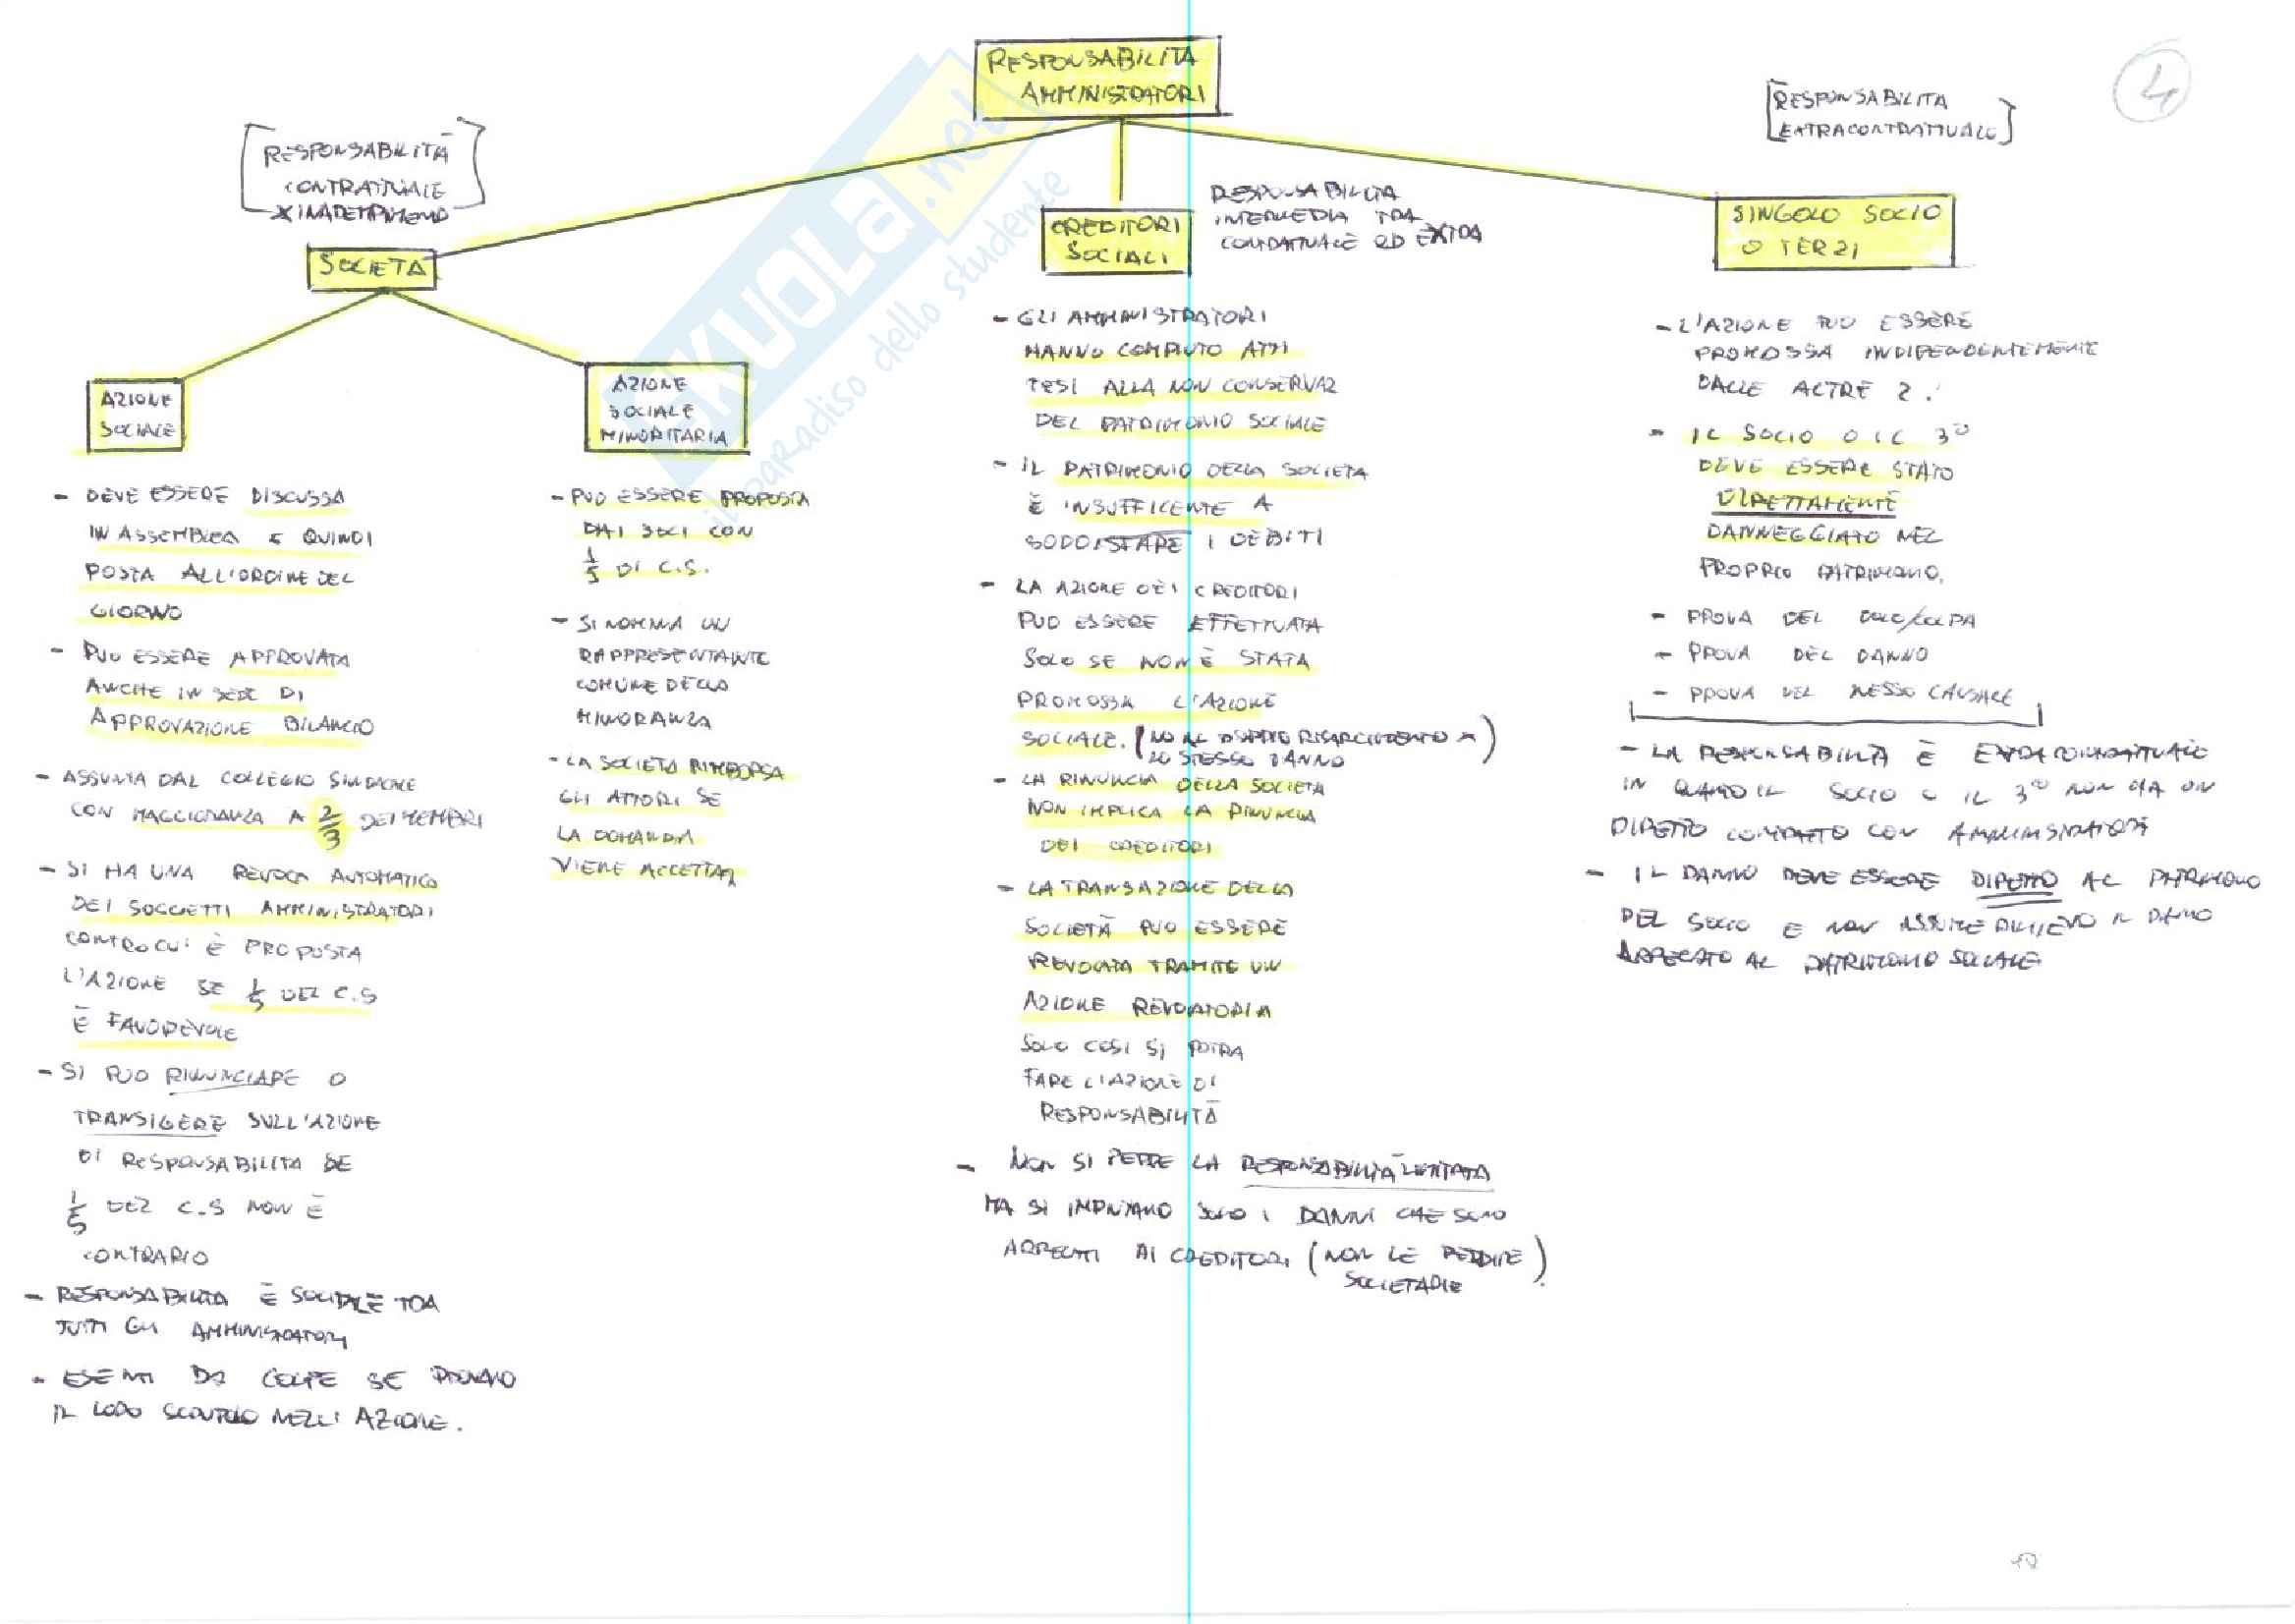 RESPONSABILITA
AMMINISTRATORI
4
[RESPONSABILITÀ
CONTRATTUALE
X INADEMPIMENTO]
[RESPONSABILITA
EXTRACONTRATTUALE]
SOCIETA
CREDITORI
SOCIALI
RESPONSABILITA
INTERMEDIA TRA
CONTRATTUALE ED EXTRA
SINGOLO SOCIO
O TERZI
AZIONE
SOCIALE
- DEVE ESSERE DISCUSSA
IN ASSEMBLEA E QUINDI
POSTA ALL'ORDINE DEL
GIORNO
- PUO ESSERE APPROVATA
ANCHE IN SEDE DI
APPROVAZIONE BILANCIO
- ASSUNTA DAL COLLEGIO SINDACALE
CON MAGGIORANZA A 2/3 DEI MEMBRI
- SI HA UNA REVOCA AUTOMATICA
DEI SOGGETTI AMMINISTRATORI
CONTRO CUI È PROPOSTA
L'AZIONE SE 1/5 DEL C.S
È FAVOREVOLE
- SI PUO RINUNCIARE O
TRANSIGERE SULL'AZIONE
DI RESPONSABILITA SE
1/5 DEL C.S NON È
CONTRARIO
- RESPONSABILITA È SOLIDALE TRA
TUTTI GLI AMMINISTRATORI
- ESENTI DA COLPE SE PROVANO
IL LORO NELL'AZIONE.
AZIONE
SOCIALE
MINORITARIA
- PUO ESSERE PROPOSTA
DAI SOCI CON
1/5 DI C.S.
- SI NOMINA UN
RAPPRESENTANTE
COMUNE DELLA
MINORANZA
- LA SOCIETA RIMBORSA
GLI ATTORI SE
LA DOMANDA
VIENE ACCETTATA
- GLI AMMINISTRATORI
HANNO COMPIUTO ATTI
TESI ALLA NON CONSERVAZ
DEL PATRIMONIO SOCIALE
- IL PATRIMONIO DELLA SOCIETA
È INSUFFICENTE A
SODDISFARE I DEBITI
- LA AZIONE DEI CREDITORI
PUO ESSERE EFFETTUATA
SOLO SE NON È STATA
PROMOSSA L'AZIONE
SOCIALE. (NO AL DOPPIO RISARCIMENTO X
LO STESSO DANNO)
- LA RINUNCIA DELLA SOCIETA
NON IMPLICA LA RINUNCIA
DEI CREDITORI
- LA TRANSAZIONE DELLA
SOCIETÀ PUO ESSERE
REVOCATA TRAMITE UN
AZIONE REVOCATORIA
SOLO COSI SI POTRA
FARE L'AZIONE DI
RESPONSABILITÀ
- NON SI PERDE LA RESPONSABILITÀ LIMITATA
MA SI IMPUTANO SOLO I DANNI CHE SONO
ARRECATI AI CREDITORI (NON LE PERDITE
SOCIETARIE).
- L'AZIONE PUO ESSERE
PROMOSSA INDIPENDENTEMENTE
DALLE ALTRE 2.
- IL SOCIO O IL 3°
DEVE ESSERE STATO
DIRETTAMENTE
DANNEGGIATO NEL
PROPRIO PATRIMONIO.
- PROVA DEL DOLO/COLPA
- PROVA DEL DANNO
- PROVA DEL NESSO CAUSALE
- LA RESPONSABILITÀ È EXTRACONTRATTUALE
IN QUANTO IL SOCIO O IL 3° NON HA UN
DIRETTO CONTATTO CON AMMINISTRATORI
- IL DANNO DEVE ESSERE DIRETTO AL PATRIMONIO
DEL SOCIO E NON ASSUME RILIEVO IL DANNO
ARRECATO AL PATRIMONIO SOCIALE
SKUOLA.net
il paradiso dello studente